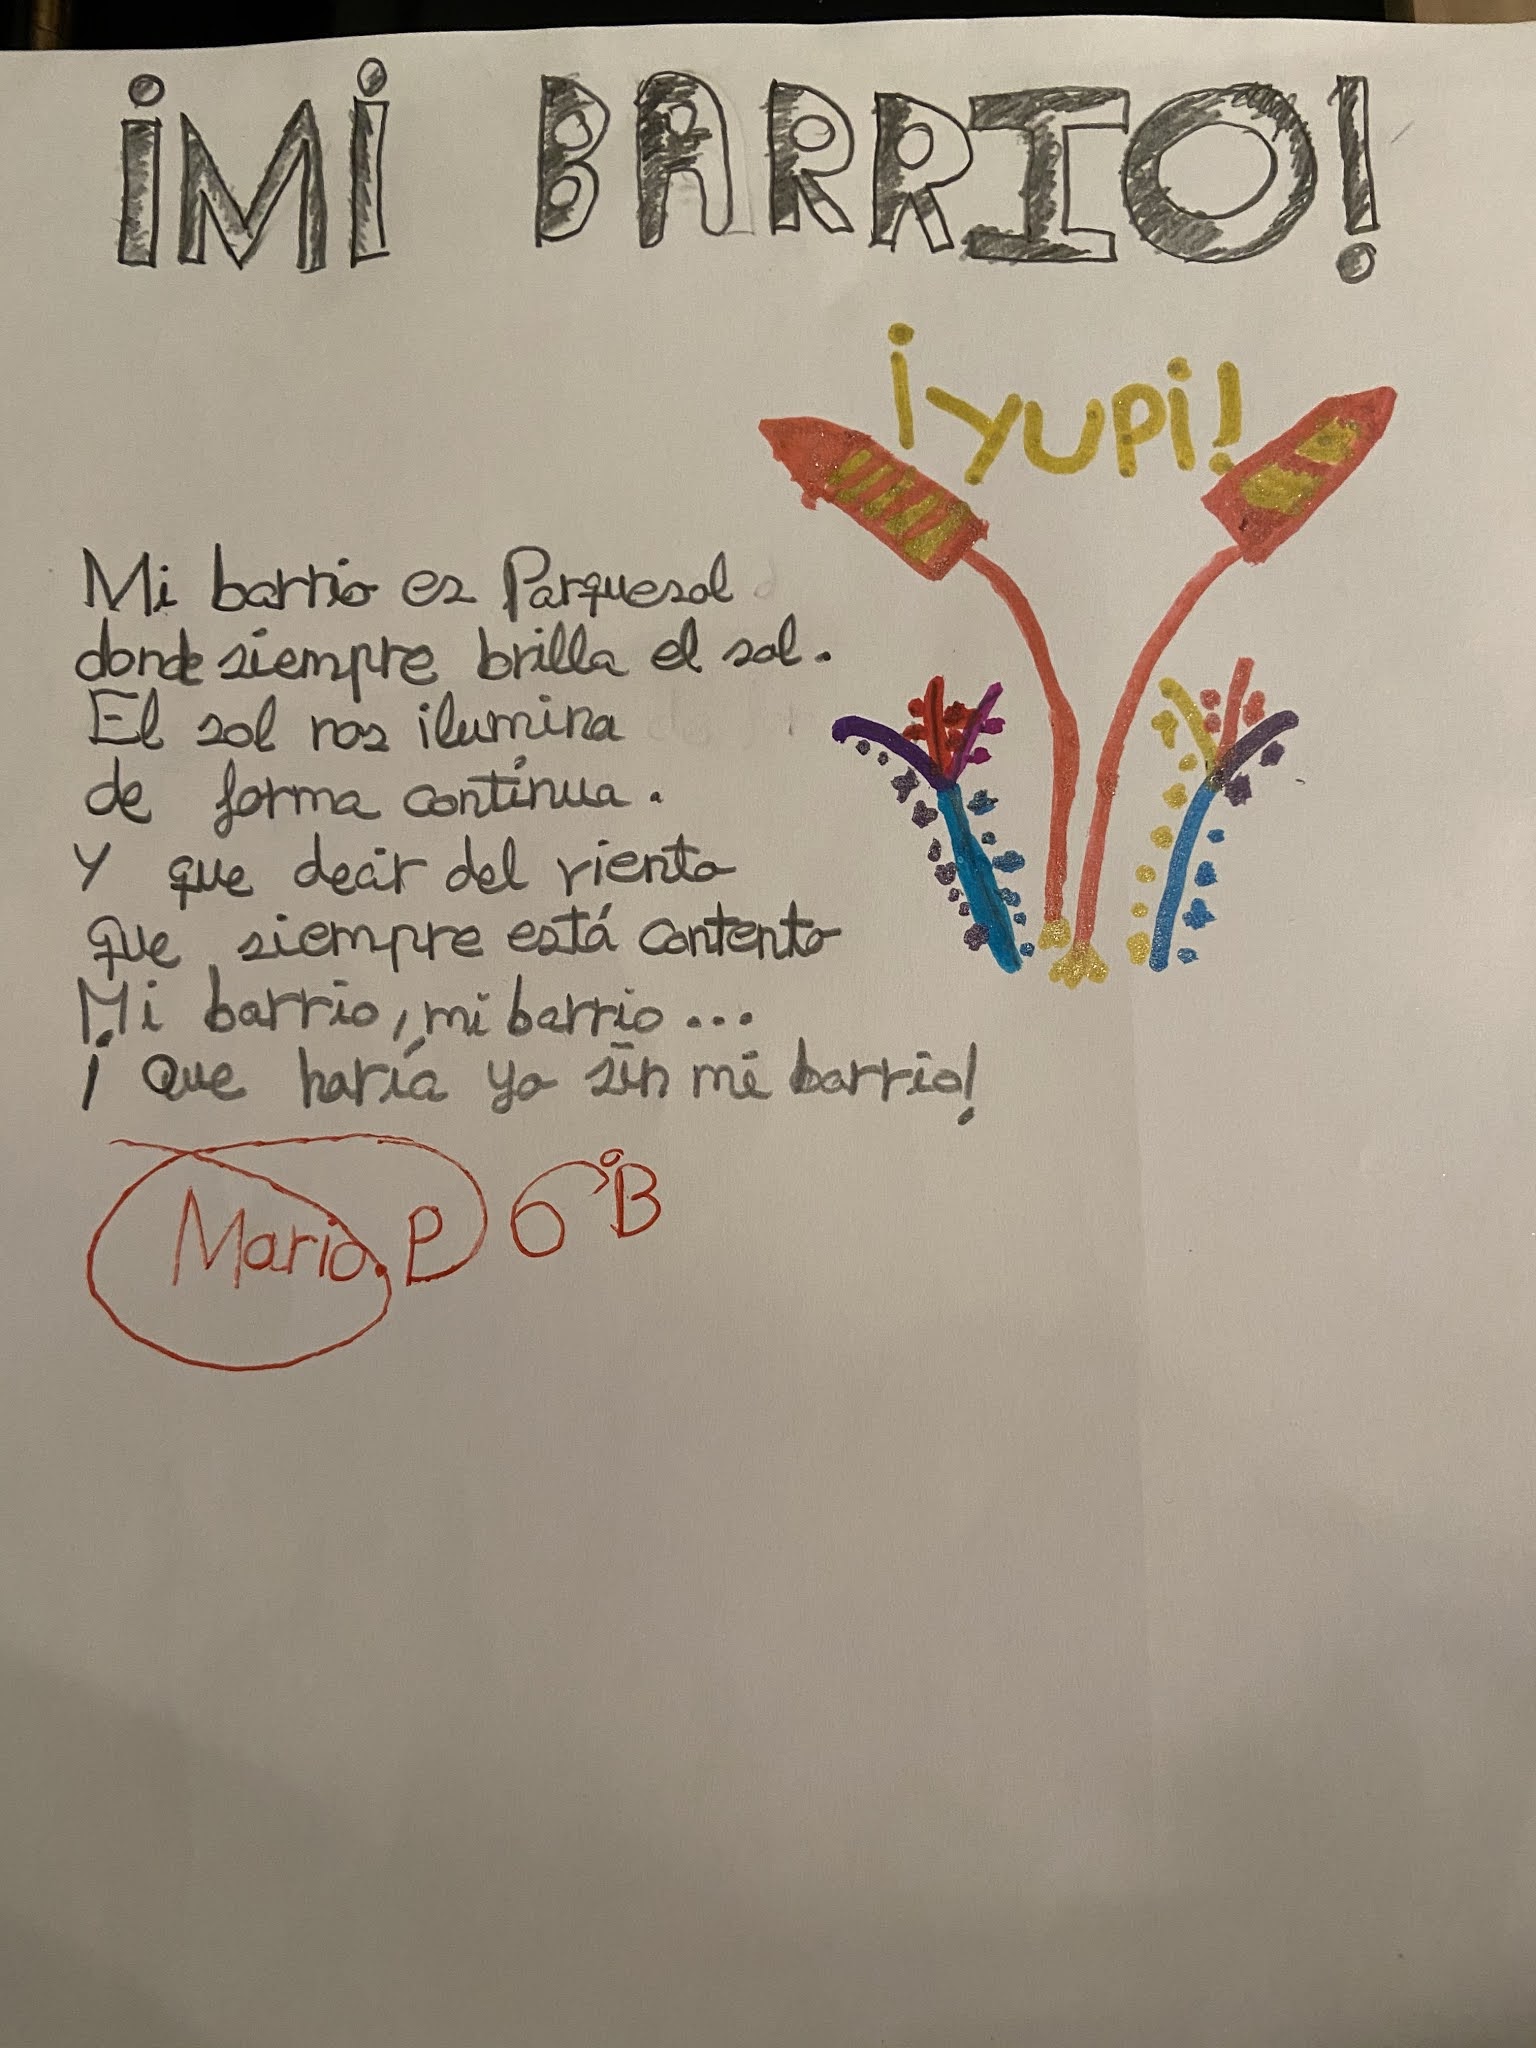 ¡Mi BARRIO!
¡yupi!
Mi barrio es Parquesol
donde siempre brilla el sol.
El sol nos ilumina
de forma continua.
Y que decir del viento
que siempre está contento
Mi barrio, mi barrio...
¡Que haría yo sin mi barrio!
Mario.P 6ºB